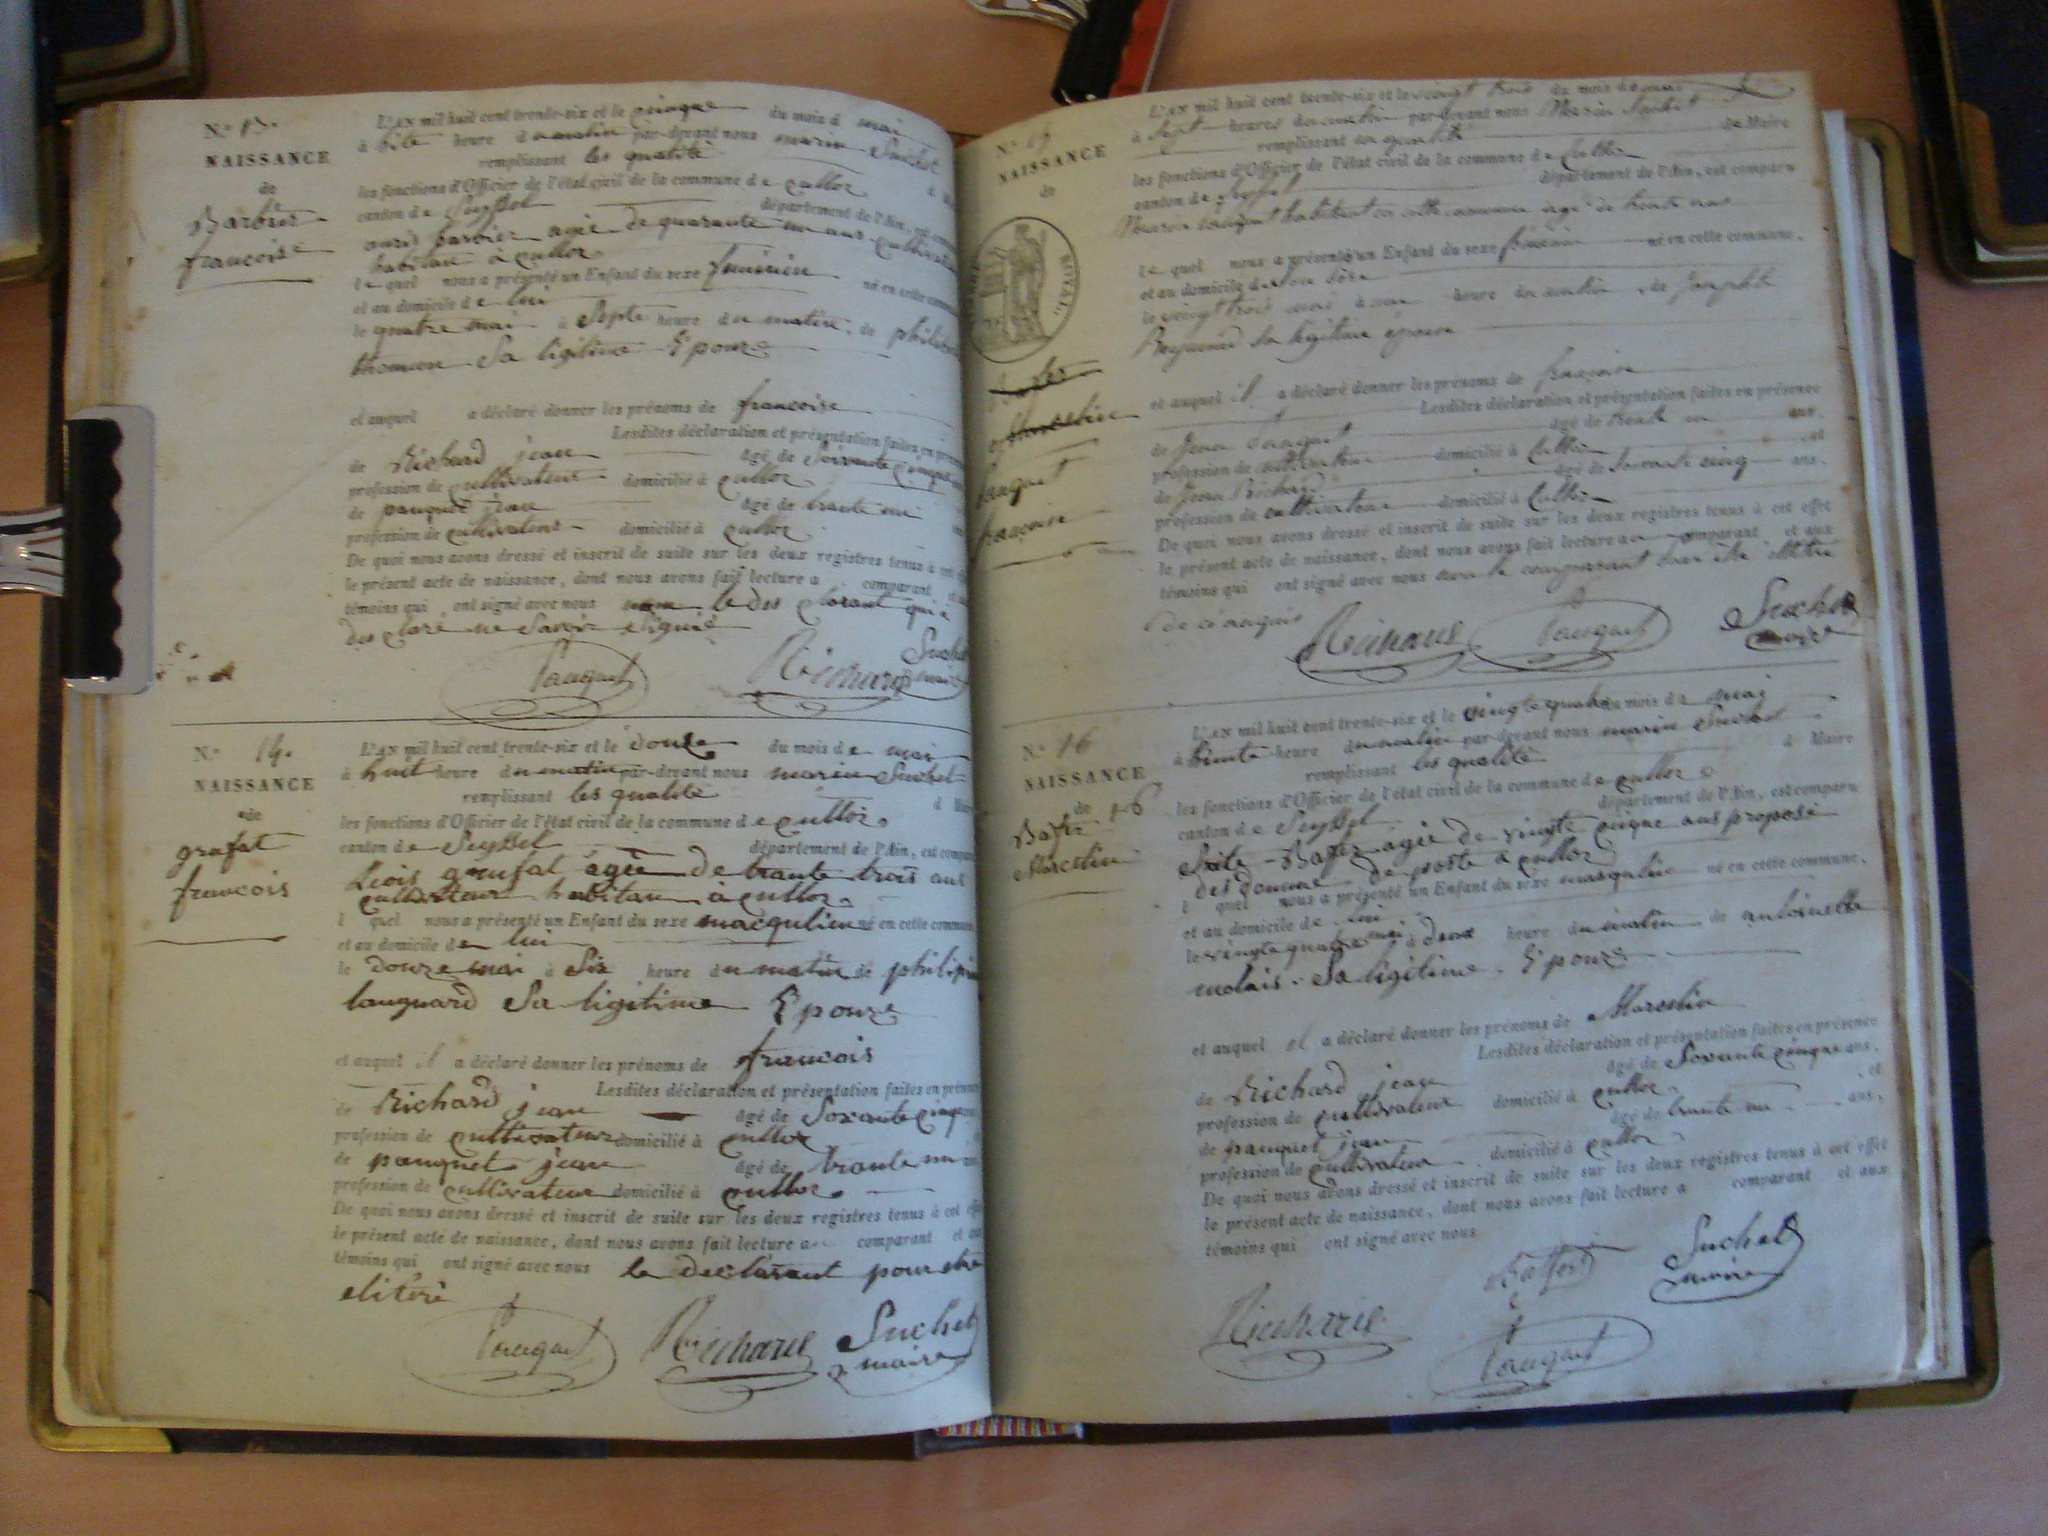 N.° 13.
NAISSANCE
de
Barbier
francoise
L'AN mil huit cent trente-six et le cinque du mois d mai
à heure du matin par-devant nous marin Suchet
remplissant les qualité
les fonctions d'Officier de l'état civil de la commune de culloz
canton de Seyssel département de l'Ain, est
barbier agie de quarante un ans
habitan à culloz
le quel nous a présenté un Enfant du sexe feminien né en cette
et au domicile de lui
le quatre mai à Septe heure du matin, de
thoman Sa ligitime Epouze
et auquel a déclaré donner les prénoms de francoise
Lesdites déclaration et présentation faites en
de Richard jean agé de
profession de cultivateur domicilié à culloz
de pauquet jean agé de trante un
profession de cultivateur domicilié à culloz
De quoi nous avons dressé et inscrit de suite sur les deux registres tenus à cet
le présent acte de naissance, dont nous avons fait lecture a comparant
témoins qui ont signé avec nous non le des clarant qui à
des claré ne Savoir Signié
Pauquet Richard Suchet maire
N.° 14.
NAISSANCE
de
grufat
francois
L'AN mil huit cent trente-six et le douze du mois de mai
à huit heure du matin par-devant nous marin Suchet
remplissant les qualité
les fonctions d'Officier de l'état civil de la commune de culloz.
canton de Seyssel département de l'Ain, est
grufat agie de trante trois ans
cultivateur habitan à culloz.
l quel nous a présenté un Enfant du sexe macqulien né en cette
et au domicile de lui
le douze mai à Six heure du matin de
Sa ligitime Epouze
et auquel il a déclaré donner les prénoms de francois
Lesdites déclaration et présentation faites en
de Richard jean agé de Soxante cinque
profession de cultivateur domicilié à culloz
de pauquet jean agé de trante un
profession de cultivateur domicilié à culloz.
De quoi nous avons dressé et inscrit de suite sur les deux registres tenus à cet
le présent acte de naissance, dont nous avons fait lecture a comparant et aux
témoins qui ont signé avec nous le declarant pour etre
elitere
Pauquet Richard Suchet
maire
N.°
NAISSANCE
de
Pauquet
francoise
L'AN mil huit cent trente-six et le vingt trois du mois de mai
à Sept heures du matin par-devant nous Marin Suchet
remplissant en qualité de Maire
les fonctions d'Officier de l'état civil de la commune de Culloz
canton de Seyssel département de l'Ain, est comparu
habitant en cette commune agé de trente ans
le quel nous a présenté un Enfant du sexe féminin né en cette commune,
et au domicile de son père
le vingt trois mai à heure du matin, de Josephte
Reymond sa légitime épouse
et auquel il a déclaré donner les prénoms de françoise
Lesdites déclaration et présentation faites en présence
de Jean Pauquet agé de trente un ans.
profession de cultivateur domicilié à Culloz et
de Jean Richard agé de soixante cinq ans.
profession de cultivateur domicilié à Culloz
De quoi nous avons dressé et inscrit de suite sur les deux registres tenus à cet effet
le présent acte de naissance, dont nous avons fait lecture au comparant et aux
témoins qui ont signé avec nous non le comparant
de ce enquis
Richard Pauquet Suchet
maire
N.° 16
NAISSANCE
de 16
Marcelin
L'AN mil huit cent trente-six et le vingte quatre du mois de mai
à heure du matin par-devant nous marin Suchet
remplissant les qualité d Maire
les fonctions d'Officier de l'état civil de la commune de culloz
canton de Seyssel département de l'Ain, est comparu
agie de vingte cinque ans proposé
des douane de poste à culloz
l quel nous a présenté un Enfant du sexe masqulin né en cette commune,
et au domicile de lui
le vingte quatre mai à deux heure du matin de antoinette
molais. Sa ligitime Epouze
et auquel il a déclaré donner les prénoms de Marcelin
Lesdites déclaration et présentation faites en présence
de Richard jean agé de Soxante cinque ans.
profession de cultivateur domicilié à culloz. et
de pauquet jean agé de trante un ans.
profession de cultivateur domicilié à culloz
De quoi nous avons dressé et inscrit de suite sur les deux registres tenus à cet effet
le présent acte de naissance, dont nous avons fait lecture a comparant et aux
témoins qui ont signé avec nous
Suchet
maire
Richard
Pauquet